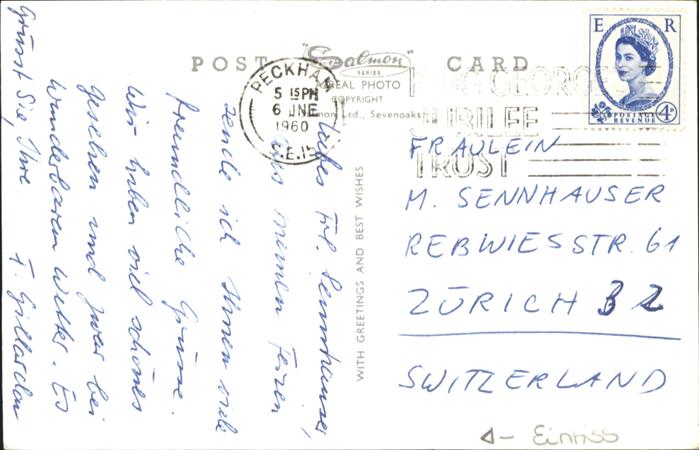 POST CARD
"Salmon"
SERIES
REAL PHOTO
COPYRIGHT
Ltd., Sevenoaks
WITH GREETINGS AND BEST WISHES
PECKHAM
5 15 PM
6 JNE
1960
S.E.15
KING GEORGE
JUBILEE
TRUST
E R
POSTAGE
REVENUE
4D
Liebes Frl. Sennhauser,
Aus meinen Ferien
sende ich Ihnen viele
freundliche Grüsse.
Wir haben viel schönes
gesehen und zwar bei
wunderbarem Wetter. Es
Grüsst Sie, Ihre
F.
FRÄULEIN
M. SENNHAUSER
REBWIESSTR. 61
ZÜRICH 32
SWITZERLAND
Einriss